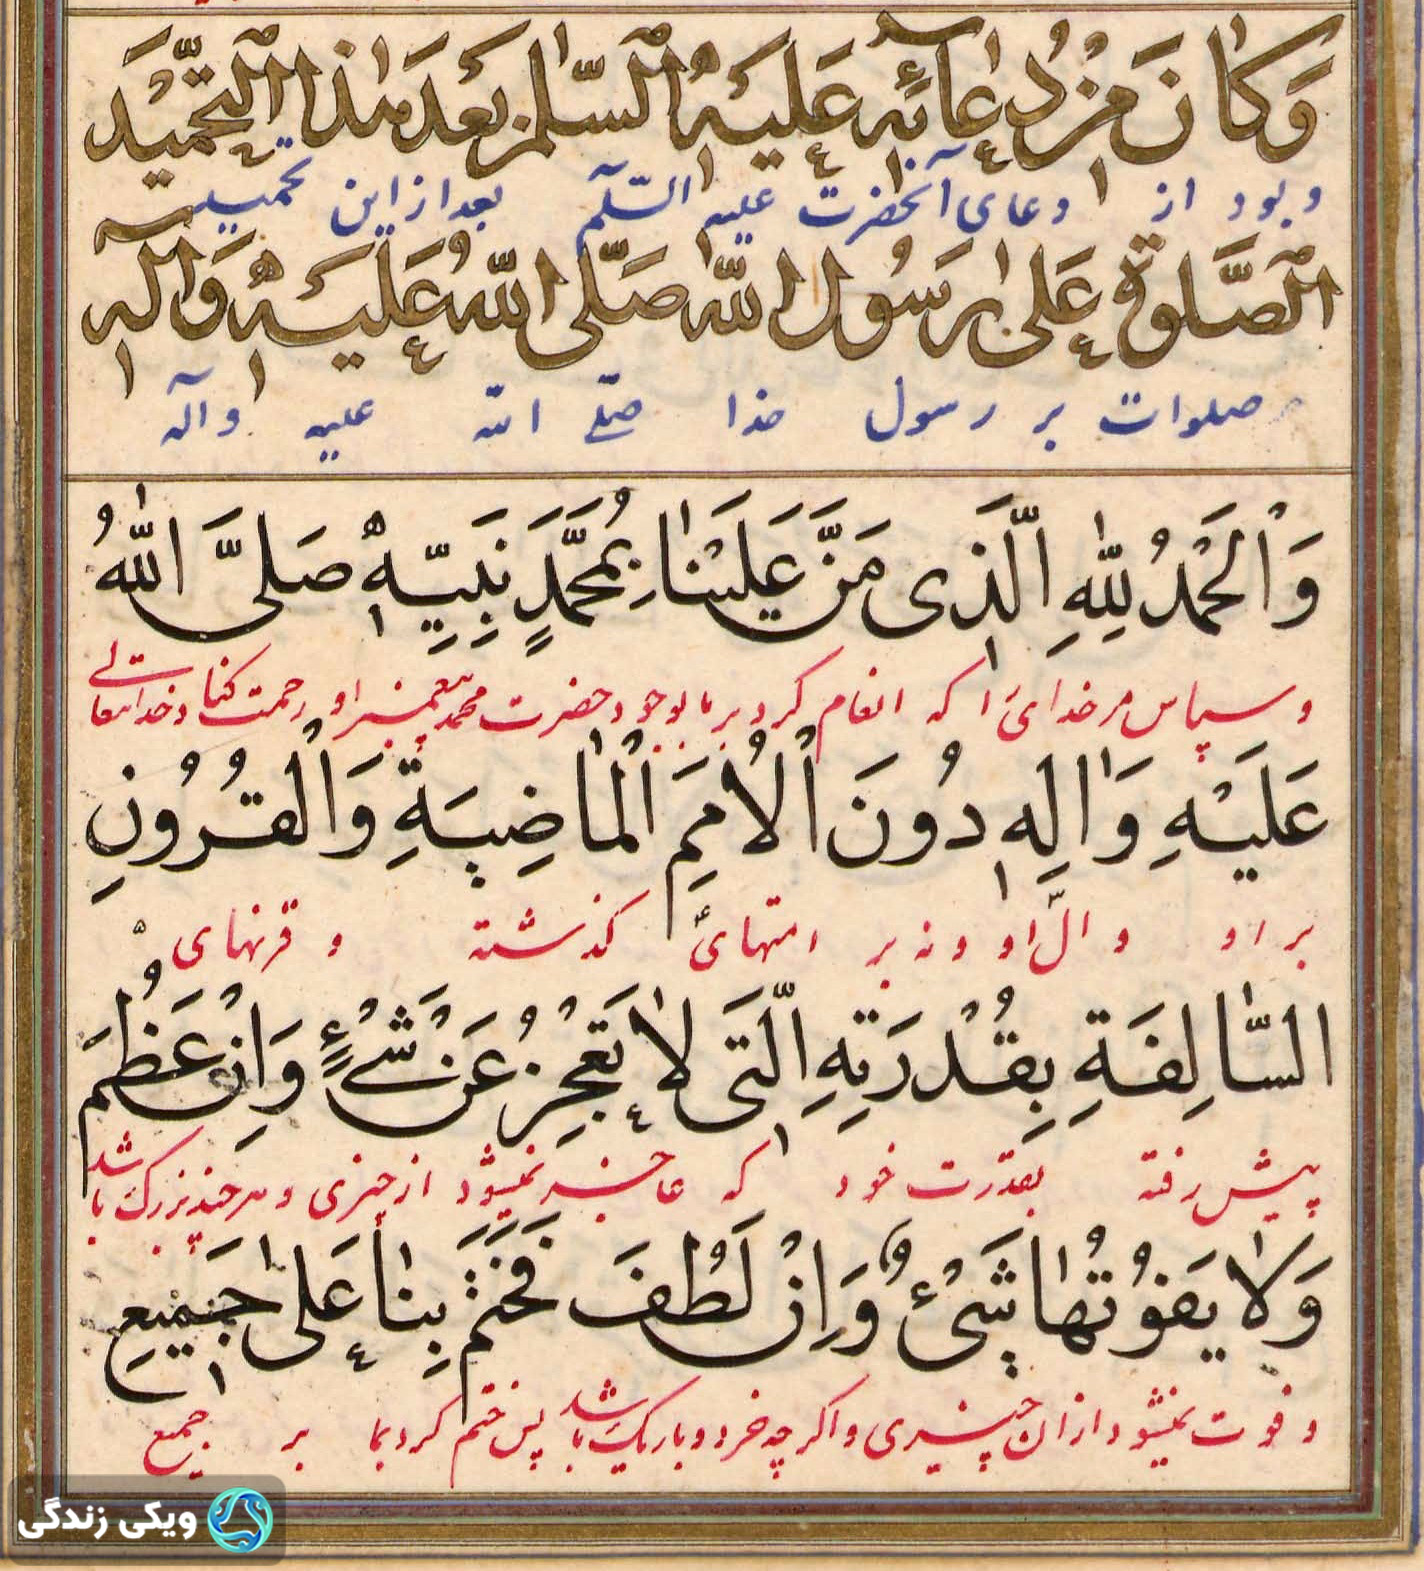 وَكَانَ مِنْ دُعَائِهِ عَلَيْهِ السَّلٰمُ بَعْدَ هٰذَا التَّحْمِيْدِ
و بود از دعای آنحضرت علیه السّلٓم بعد از این تحمید
اَلصَّلٰوةُ عَلٰى رَسُولِ اللّٰهِ صَلَّى اللّٰهُ عَلَيْهِ وَآلِهِ
صلوات بر رسول خدا صلّی اللّه علیه و آله
وَالْحَمْدُ لِلّٰهِ الَّذِى مَنَّ عَلَيْنٰا بِمُحَمَّدٍ نَبِيِّهِ صَلَّى اللّٰهُ
و سپاس مر خدای را که انعام کرد بر ما بوجود حضرت محمد پیغمبر او رحمت کناد خدایتعالی
عَلَيْهِ وَاٰلِهِ دُونَ الْاُمَمِ الْمٰاضِيَةِ وَالْقُرُونِ
بر او و الّ او و نه بر امتهای گذشته و قرنهای
السّٰالِفَةِ بِقُدْرَتِهِ الَّتَى لٰا تَعْجِزُ عَنْ شَىْءٍ وَاِنْ عَظُمَ
پیش رفته بقدرت خود که عاجز نمیشود از چیزی و هر چند بزرگ باشد
وَلٰا يَفُوتُهٰا شَىْءٌ وَاِنْ لَطُفَ فَخَتَمَ بِنٰا عَلٰى جَمِيعِ
و فوت نمیشود از ان چیزی و اگر چه خرد و باریک باشد پس ختم کرد بما بر جمیع
ویکی زندگی